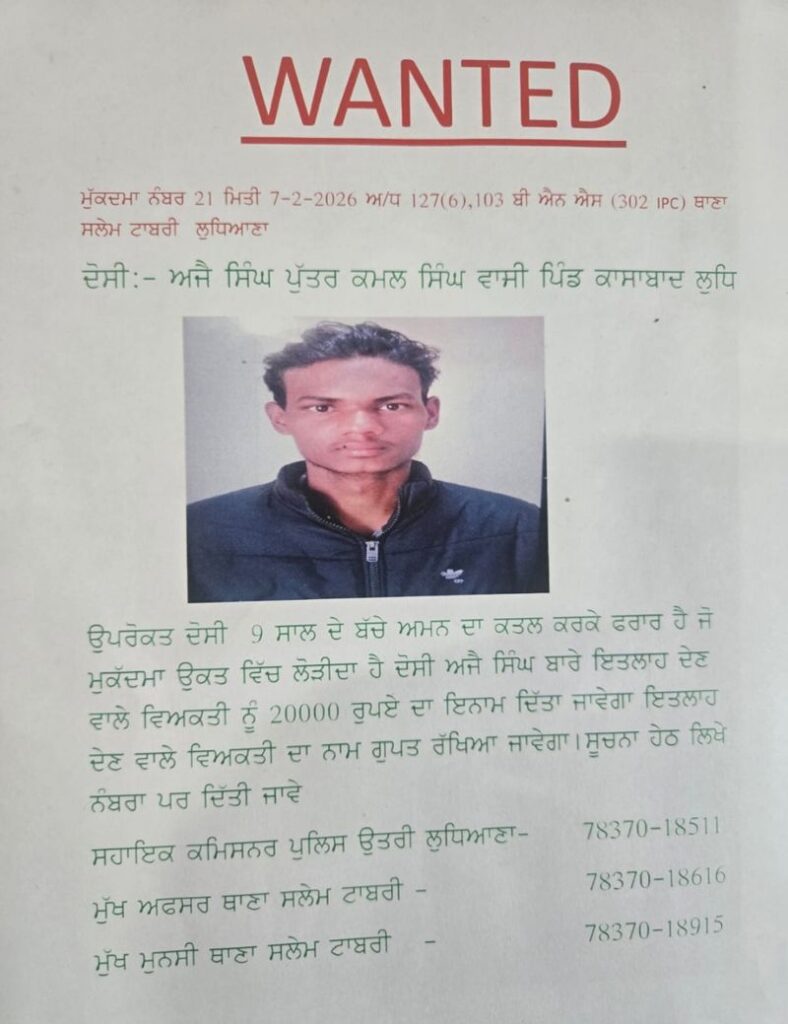 WANTED
ਮੁੱਕਦਮਾ ਨੰਬਰ 21 ਮਿਤੀ 7-2-2026 ਅ/ਧ 127(6),103 ਬੀ ਐਨ ਐਸ (302 IPC) ਥਾਣਾ
ਸਲੇਮ ਟਾਬਰੀ ਲੁਧਿਆਣਾ
ਦੋਸੀ:- ਅਜੈ ਸਿੰਘ ਪੁੱਤਰ ਕਮਲ ਸਿੰਘ ਵਾਸੀ ਪਿੰਡ ਕਾਸਾਬਾਦ ਲੁਧਿ
ਉਪਰੋਕਤ ਦੋਸੀ 9 ਸਾਲ ਦੇ ਬੱਚੇ ਅਮਨ ਦਾ ਕਤਲ ਕਰਕੇ ਫਰਾਰ ਹੈ ਜੋ
ਮੁਕੱਦਮਾ ਉਕਤ ਵਿੱਚ ਲੋੜੀਦਾ ਹੈ ਦੋਸੀ ਅਜੈ ਸਿੰਘ ਬਾਰੇ ਇਤਲਾਹ ਦੇਣ
ਵਾਲੇ ਵਿਅਕਤੀ ਨੂੰ 20000 ਰੁਪਏ ਦਾ ਇਨਾਮ ਦਿੱਤਾ ਜਾਵੇਗਾ ਇਤਲਾਹ
ਦੇਣ ਵਾਲੇ ਵਿਅਕਤੀ ਦਾ ਨਾਮ ਗੁਪਤ ਰੱਖਿਆ ਜਾਵੇਗਾ।ਸੂਚਨਾ ਹੇਠ ਲਿਖੇ
ਨੰਬਰਾ ਪਰ ਦਿੱਤੀ ਜਾਵੇ
ਸਹਾਇਕ ਕਮਿਸਨਰ ਪੁਲਿਸ ਉਤਰੀ ਲੁਧਿਆਣਾ- 78370-18511
ਮੁੱਖ ਅਫਸਰ ਥਾਣਾ ਸਲੇਮ ਟਾਬਰੀ - 78370-18616
ਮੁੱਖ ਮੁਨਸੀ ਥਾਣਾ ਸਲੇਮ ਟਾਬਰੀ - 78370-18915